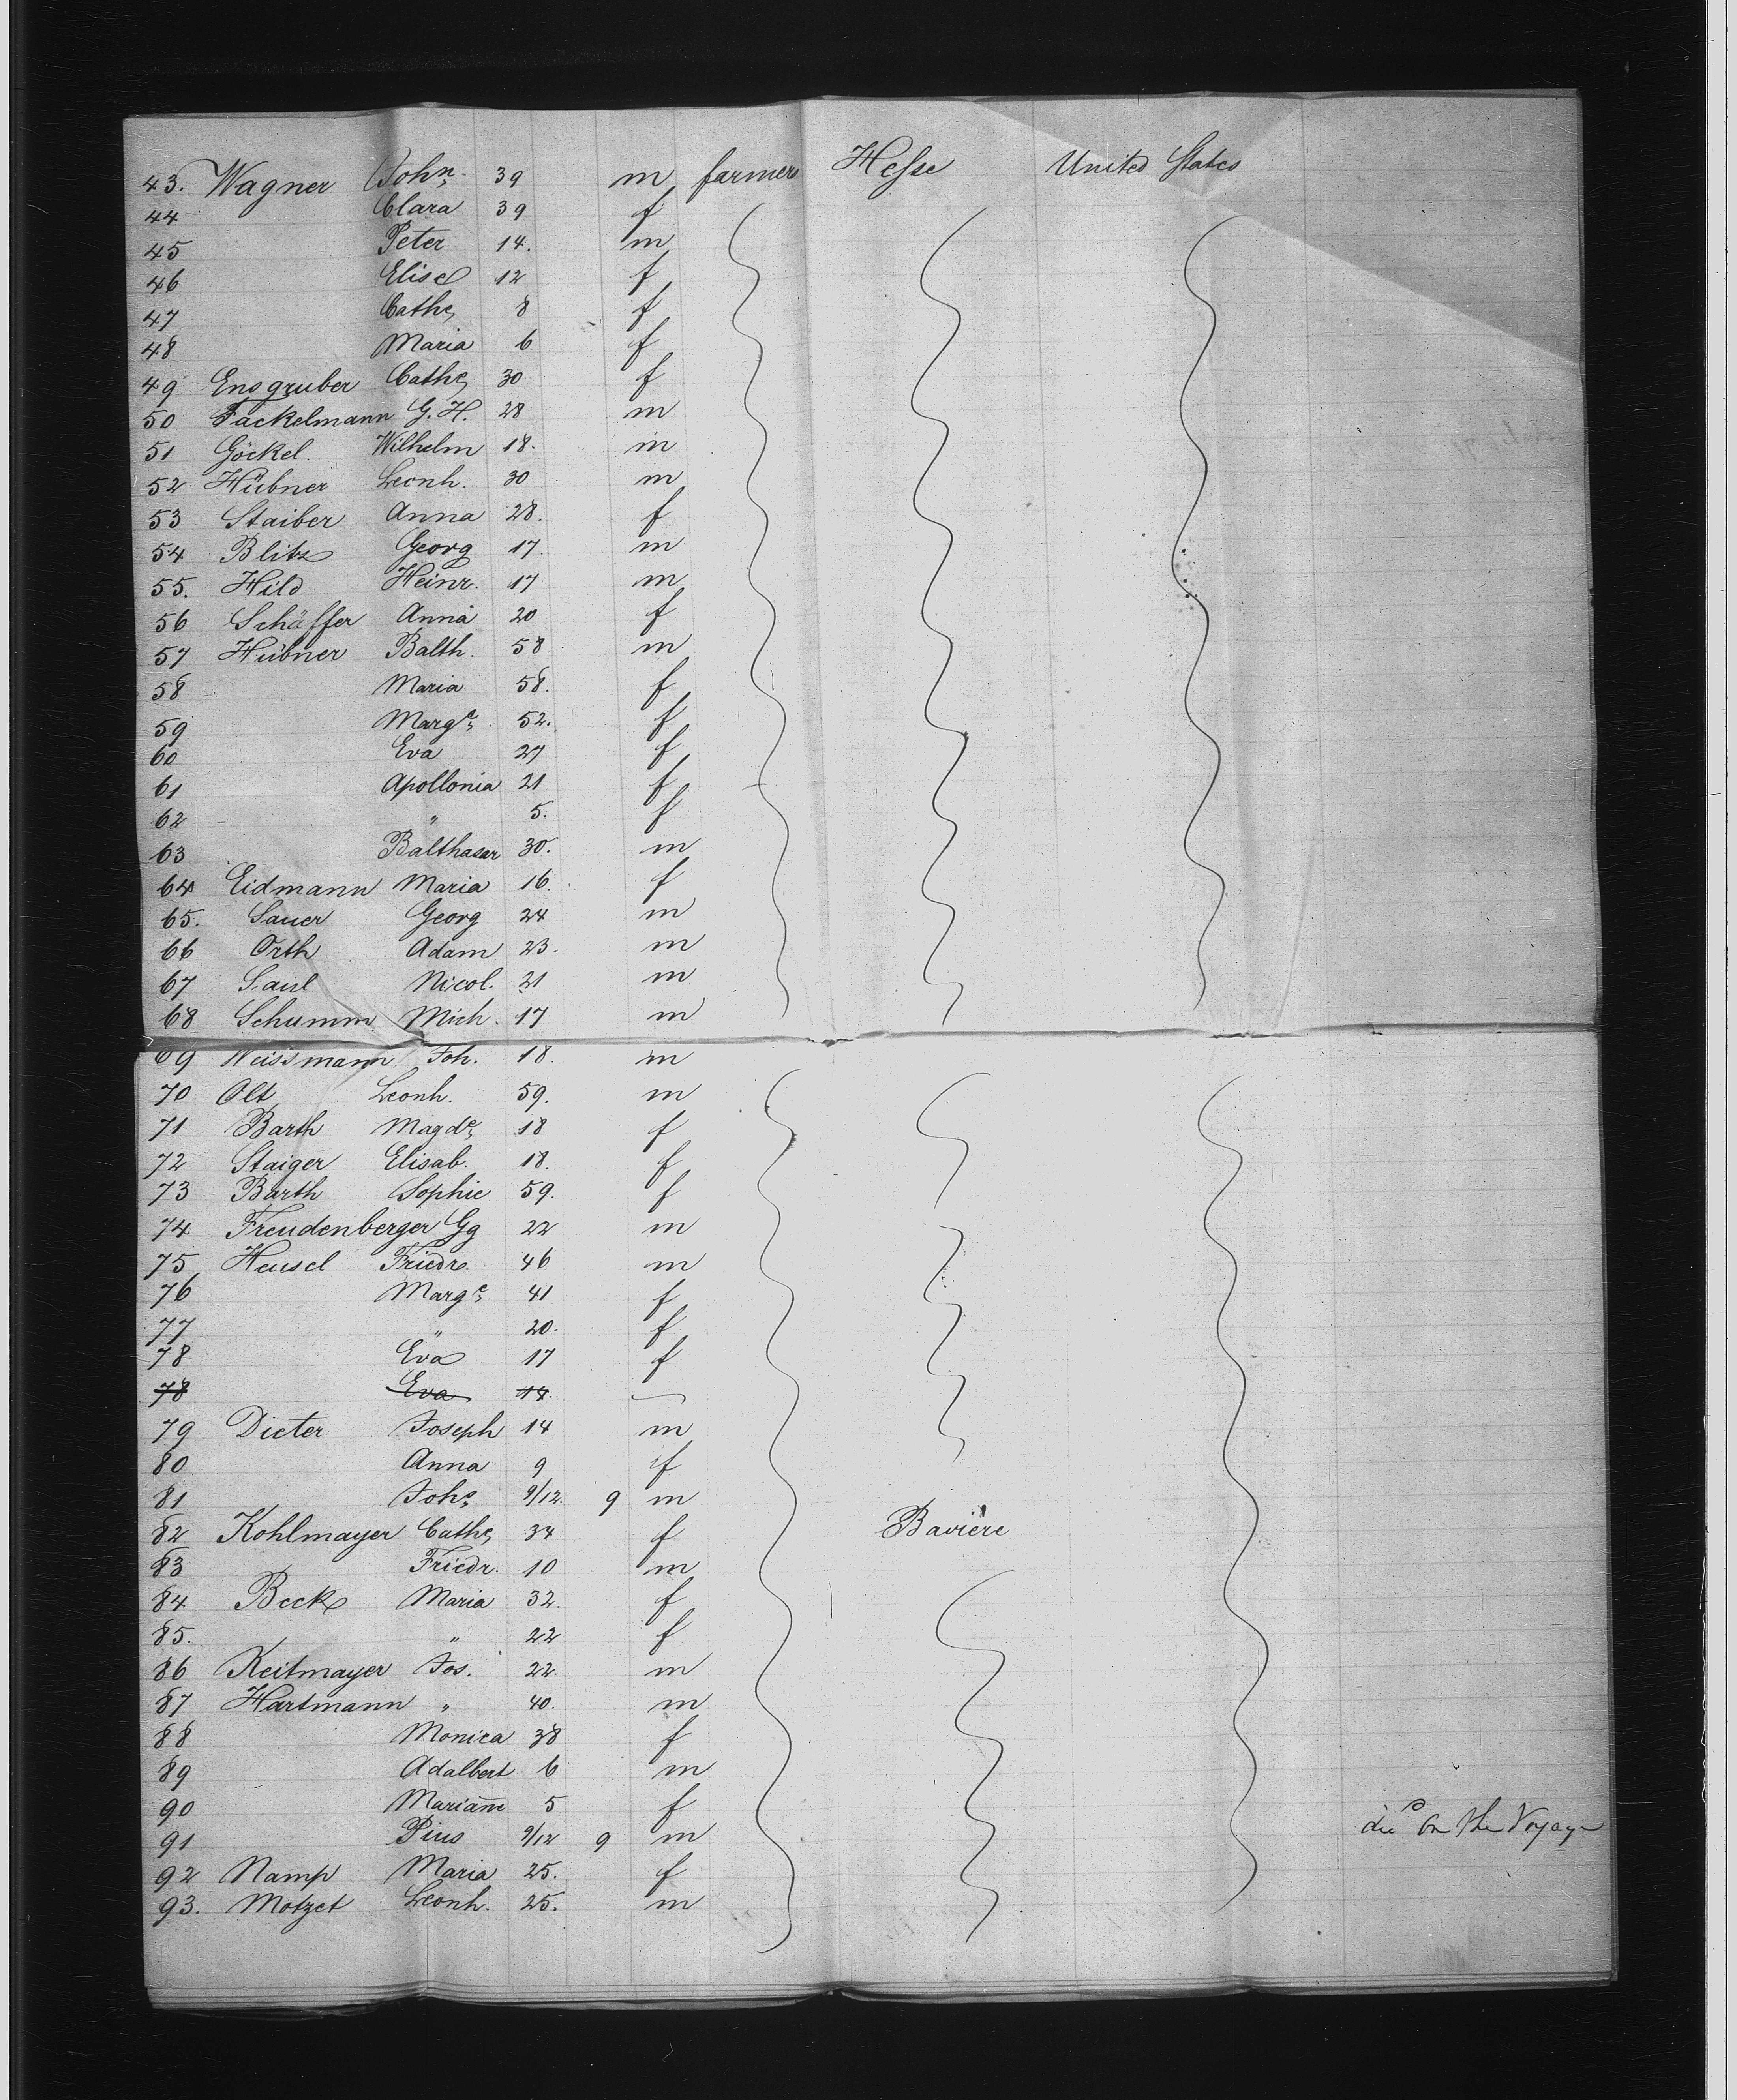 43. Wagner Joh.n 39 m farmers Hesse United States
44 Clara 39 f
45 Peter 14. m
46 Elise 12 f
47 Cathe 8 f
48 Maria 6 f
49 Ensgruber Cathe 30 f
50 Fackelmann G. H. 28 m
51 Göckel. Wilhelm 18. m
52 Hübner Leonh. 30 m
53 Staiber Anna 28. f
54 Blitz Georg 17. m
55. Hild Heinr. 17 m
56 Schäffer Anna 20 f
57 Hübner Balth. 58 m
58 Maria 58. f
59 Marg.e 52. f
60 Eva 27 f
61 Apollonia 21 f
62 " 5. f
63 Balthasar 30. m
64 Eidmann Maria 16. f
65. Sauer Georg 24 m
66 Orth Adam 23. m
67 Saul Nicol. 21 m
68 Schumm Mich. 17 m
69 Weissmann Joh. 18. m
70 Olt Leonh. 59. m
71 Barth Magd.e 18 f
72 Staiger Elisab. 18. f
73 Barth Sophie 59. f
74 Freudenberger Gg 22 m
75 Heusel Friedr. 46 m
76 Marg.e 41 f
77 " 20. f
78 Eva 17 f
78 Eva 14.
79 Dieter Joseph 14 m
80 Anna 9 f
81 Joh.s 9/12. 9 m
82 Kohlmayer Cathe 34 f Baviere
83 Friedr. 10 m
84 Beck Maria 32. f
85. " 22 f
86 Keitmayer Jos. 22. m
87 Hartmann " 40. m
88 Monica 38 f
89 Adalbert 6 m
90 Mariañe 5 f
91 Pius 9/12 9 m died on the Voyage
92 Namp Maria 25. f
93. Motzet Leonh. 25. m